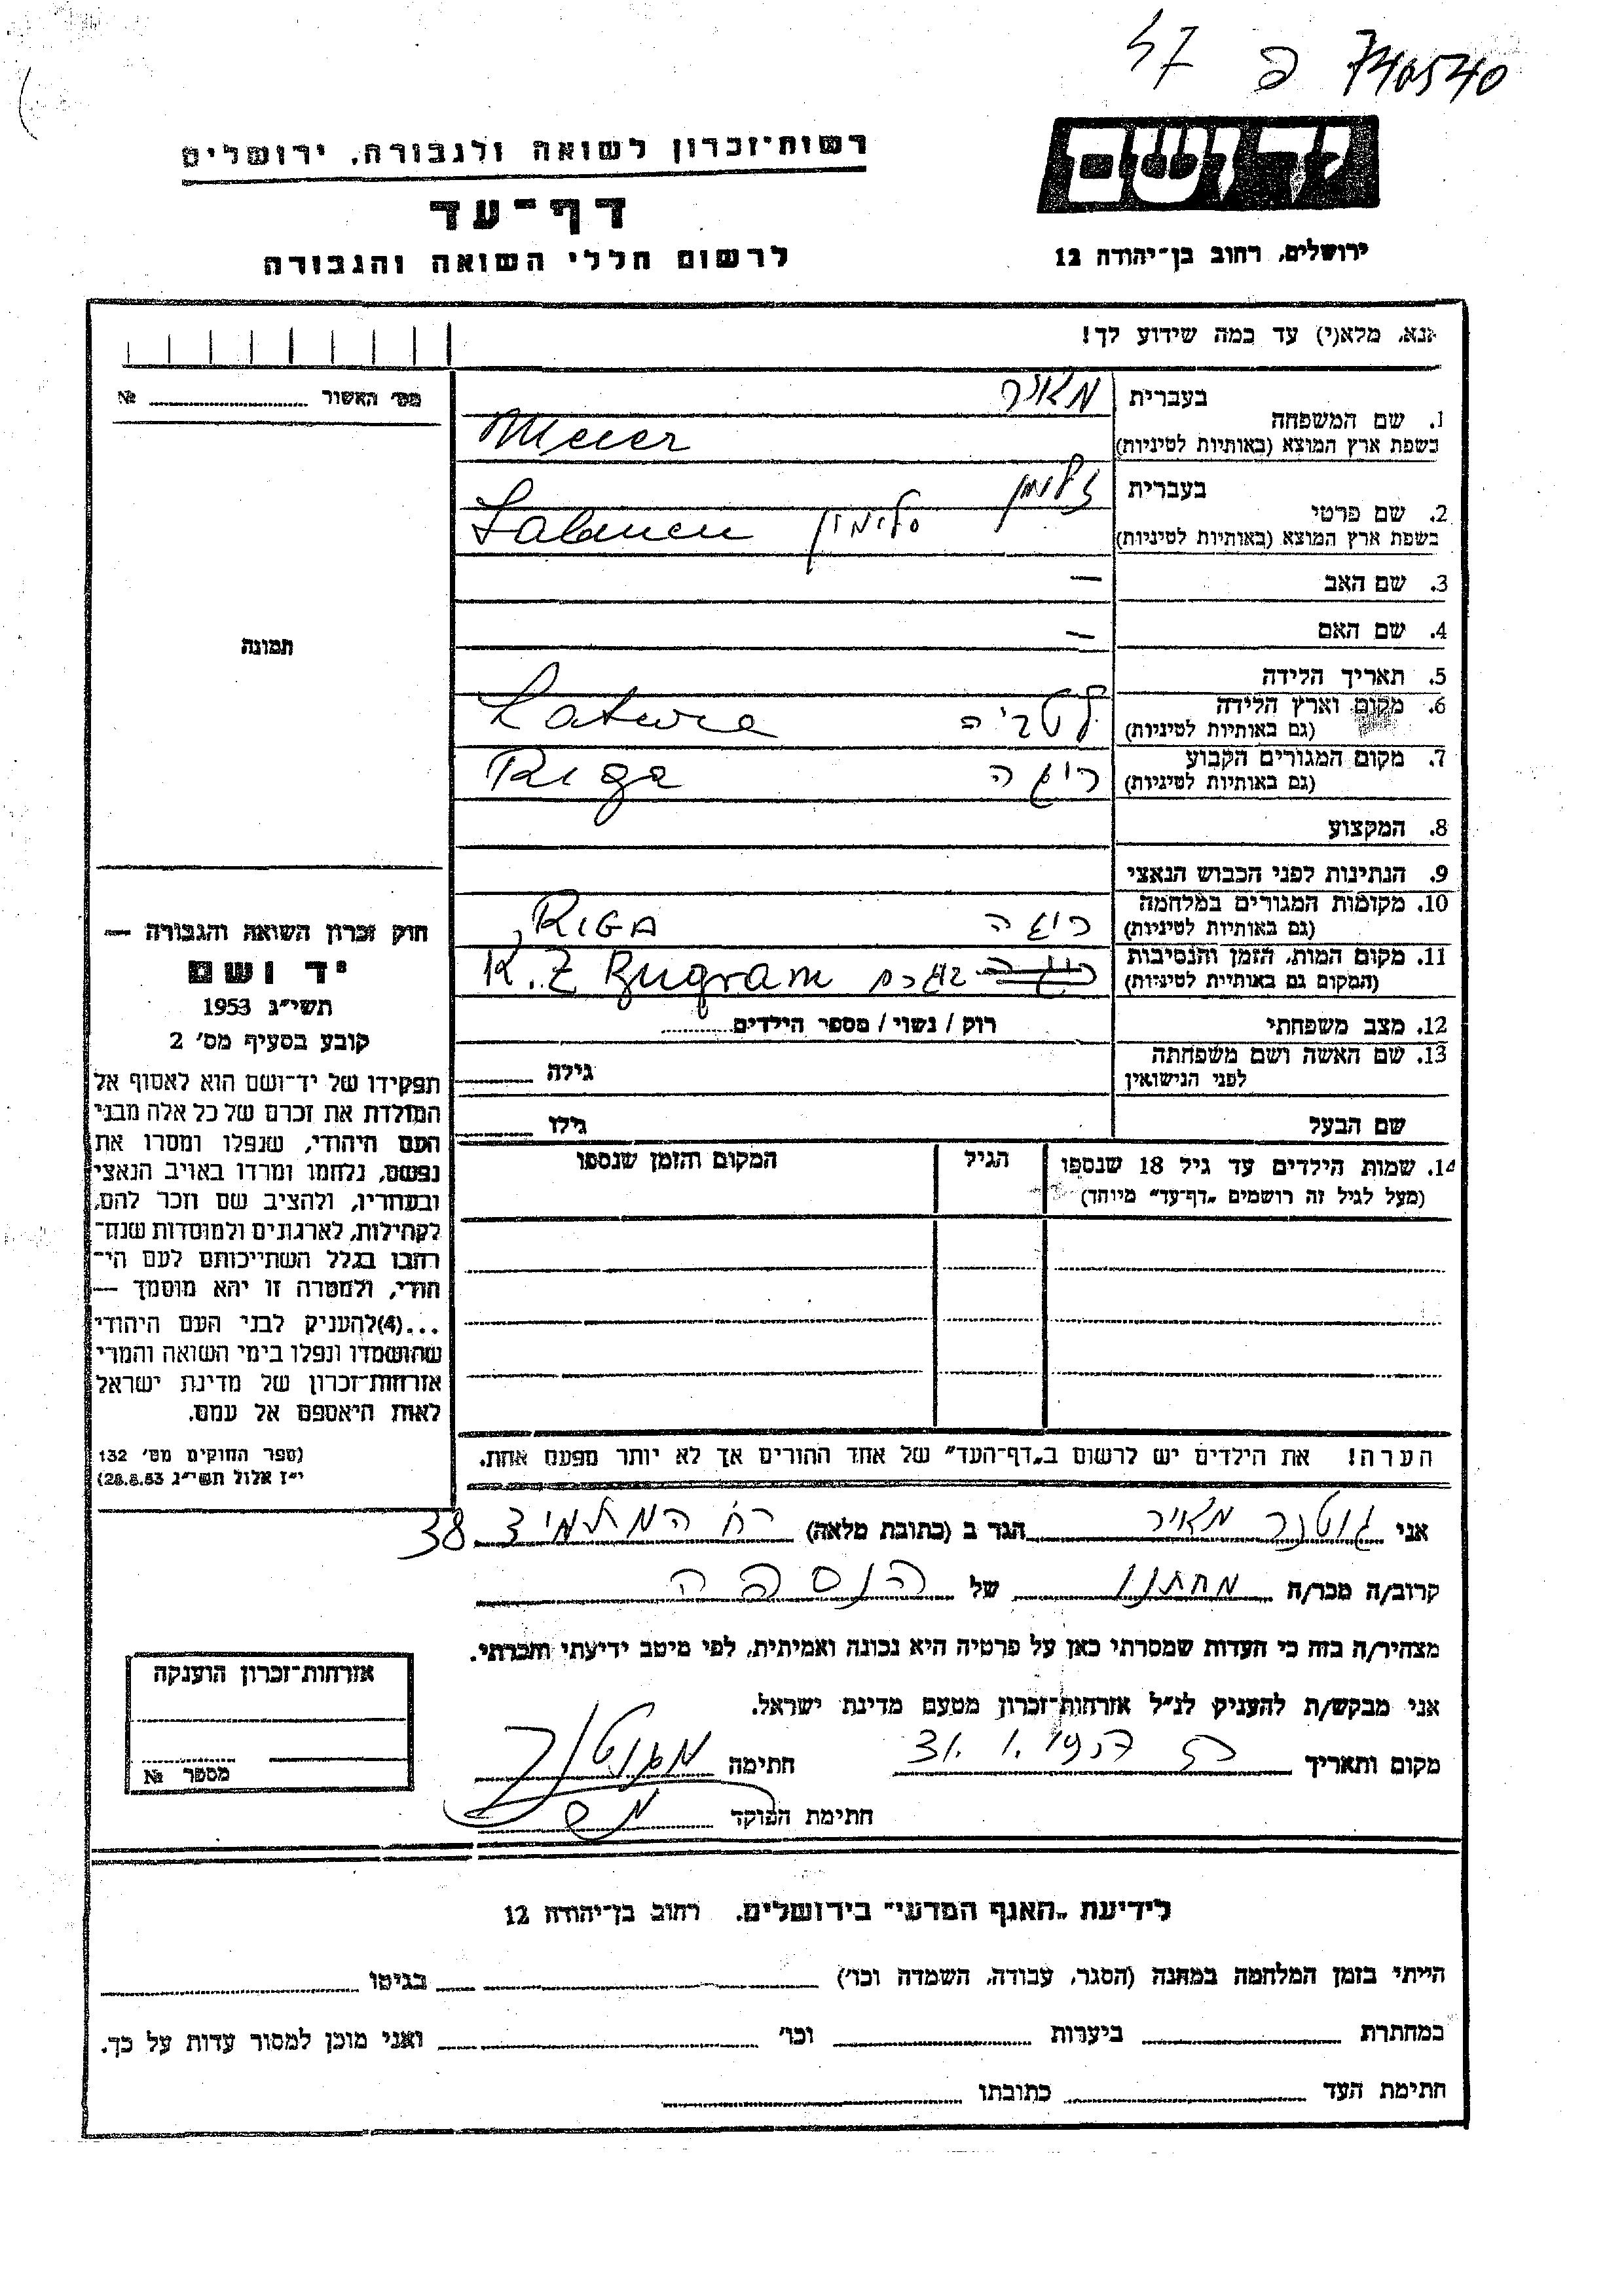 57 פ 740540
יד ושם
רשות־זכרון לשואה ולגבורה, ירושלים
דף־עד
לרשום חללי השואה והגבורה
ירושלים, רחוב בן־יהודה 12
אנא, מלא(י) עד כמה שידוע לך!
מס׳ האשור №
1. שם המשפחה בעברית מאיר
בשפת ארץ המוצא (באותיות לטיניות) Meier
2. שם פרטי בעברית זלימן
בשפת ארץ המוצא (באותיות לטיניות)
3. שם האב —
4. שם האם —
תמונה
5. תאריך הלידה
6. מקום וארץ הלידה
(גם באותיות לטיניות) לטביה
7. מקום המגורים הקבוע
(גם באותיות לטיניות) ריגה Riga
8. המקצוע
9. הנתינות לפני הכבוש הנאצי
10. מקומות המגורים במלחמה
(גם באותיות לטיניות) ריגה RIGA
11. מקום המות, הזמן והנסיבות
(המקום גם באותיות לטיניות) K.Z
12. מצב משפחתי רוק / נשוי / מספר הילדים
13. שם האשה ושם משפחתה
לפני הנישואין גילה
שם הבעל גילו
14. שמות הילדים עד גיל 18 שנספו הגיל המקום והזמן שנספו
(מעל לגיל זה רושמים „דף־עד״ מיוחד)
חוק זכרון השואה והגבורה —
יד ושם
תשי״ג 1953
קובע בסעיף מס׳ 2
תפקידו של יד־ושם הוא לאסוף אל
המולדת את זכרם של כל אלה מבני
העם היהודי, שנפלו ומסרו את
נפשם, נלחמו ומרדו באויב הנאצי
ובעוזריו, ולהציב שם וזכר להם,
לקהילות, לארגונים ולמוסדות שנח־
רבו בגלל השתייכותם לעם הי־
הודי, ולמטרה זו יהא מוסמך —
...(4)להעניק לבני העם היהודי
שהושמדו ונפלו בימי השואה והמרי
אזרחות־זכרון של מדינת ישראל
לאות היאספם אל עמם.
(ספר החוקים מס׳ 132
י״ז אלול תשי״ג 28.8.53)
הערה! את הילדים יש לרשום ב„דף־העד״ של אחד ההורים אך לא יותר מפעם אחת.
אני גוטנר מאיר הגר ב (כתובת מלאה) רח המתמיד 38
קרוב/ה מכר/ה מחתנו של הנספה
מצהיר/ה בזה כי העדות שמסרתי כאן על פרטיה היא נכונה ואמיתית, לפי מיטב ידיעתי והכרתי.
אני מבקש/ת להעניק לנ״ל אזרחות־זכרון מטעם מדינת ישראל.
מקום ותאריך 31.1. חתימה
חתימת הפוקד
אזרחות־זכרון הוענקה
מספר №
לידיעת „האגף המדעי״ בירושלים, רחוב בן־יהודה 12
הייתי בזמן המלחמה במחנה (הסגר, עבודה, השמדה וכו׳) בגיטו
במחתרת ביערות וכו׳ ואני מוכן למסור עדות על כך.
חתימת העד כתובתו